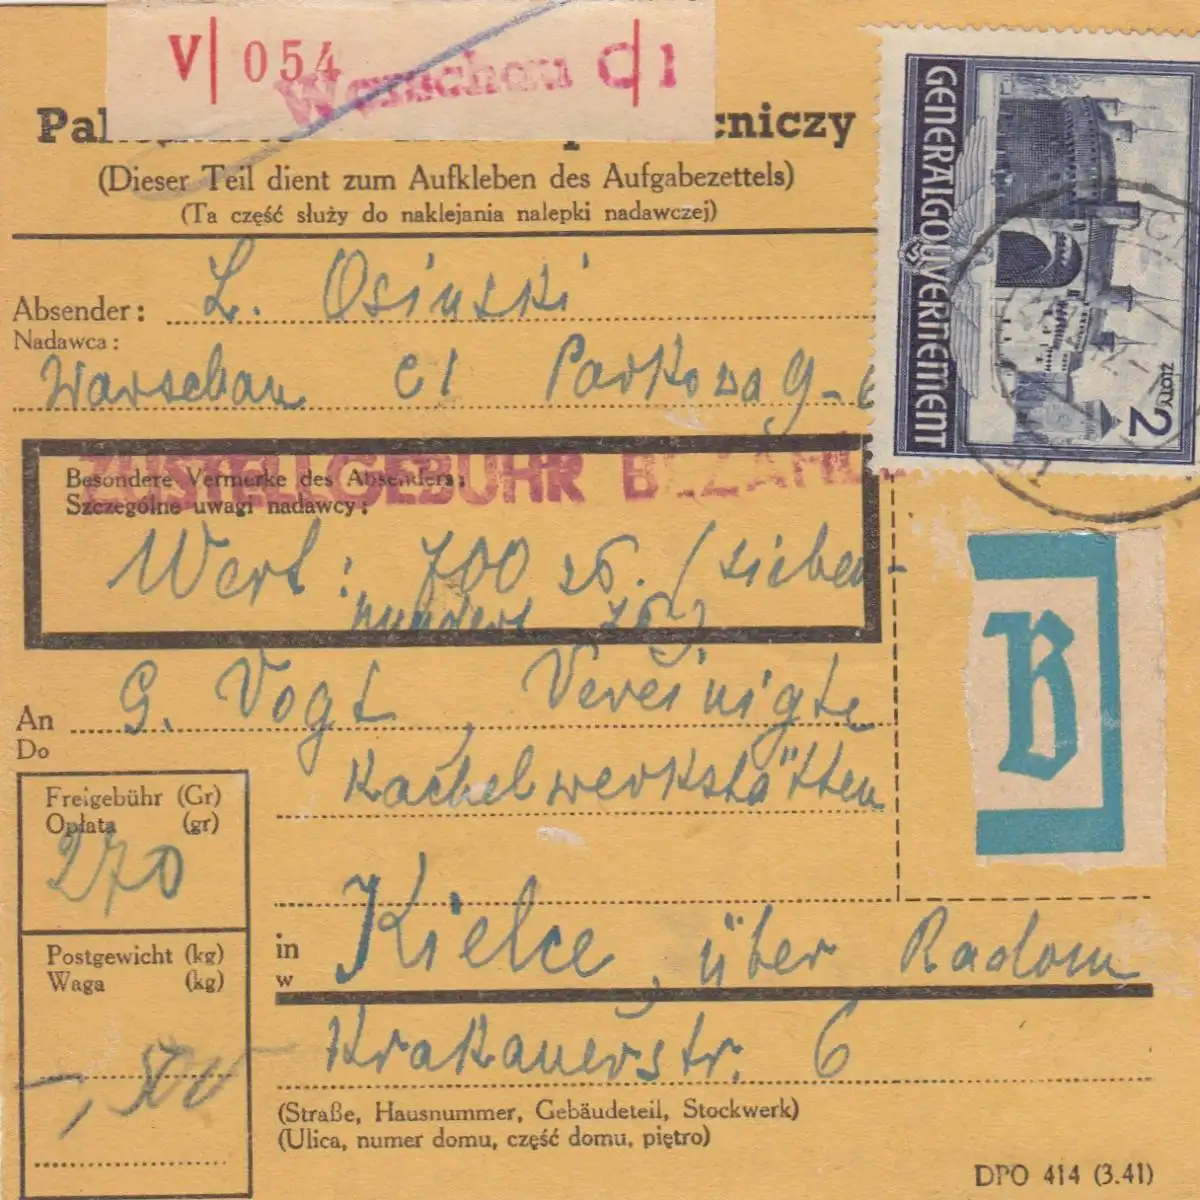 V 054 Warschau C 1
czniczy
(Dieser Teil dient zum Aufkleben des Aufgabezettels)
(Ta część służy do naklejania nalepki nadawczej)
GENERALGOUVERNEMENT
2 ZŁOTY
Absender: L. Osinski
Nadawca:
Warschau C1 Parkowa 9-
ZUSTELLGEBÜHR BEZAHL
Besondere Vermerke des Absenders:
Szczególne uwagi nadawcy:
Wert: 700 zł. (sieben-
hundert zł)
B
An G. Vogt, Vereinigte
Do
Kachelwerkstätten
Freigebühr (Gr)
Opłata (gr)
270
in Kielce, über Radom
w
Postgewicht (kg)
Waga (kg)
Krakauerstr. 6
(Straße, Hausnummer, Gebäudeteil, Stockwerk)
(Ulica, numer domu, część domu, piętro)
DPO 414 (3.41)